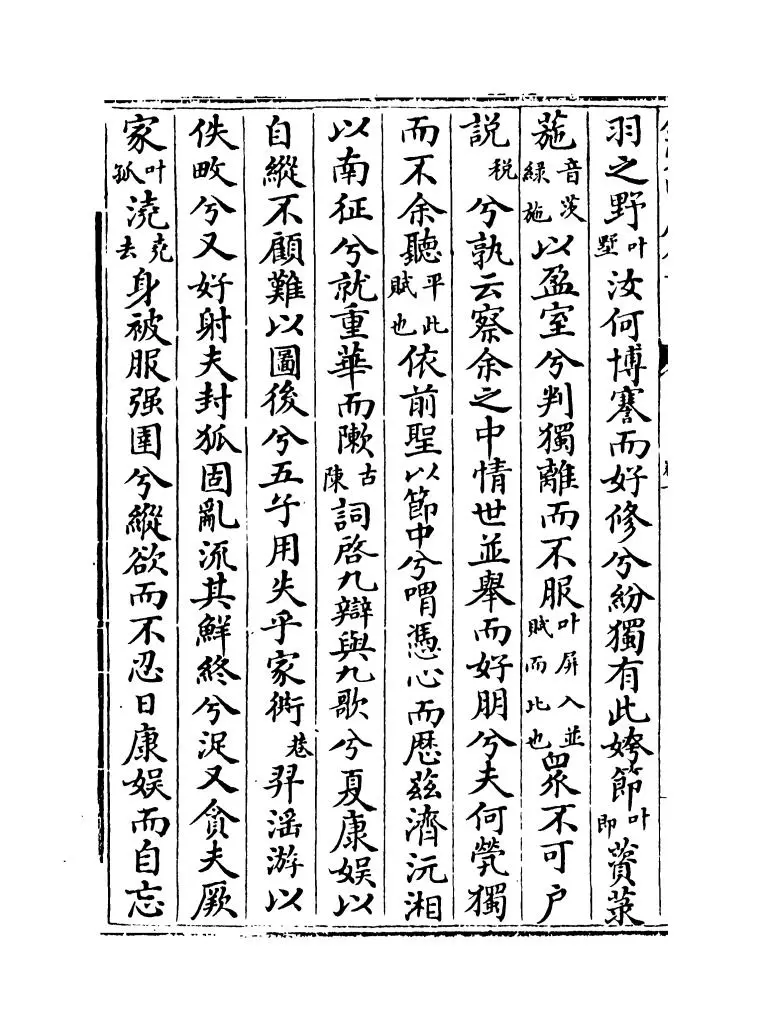 羽之野叶墅汝何博謇而好修兮紛獨有此姱節叶即薋菉
葹音茨綠施以盈室兮判獨離而不服叶屏入並賦而比也衆不可户
説税兮孰云察余之中情世並舉而好朋兮夫何煢獨
而不余聽平此賦也依前聖以節中兮喟憑心而厯茲濟沅湘
以南征兮就重華而敶古陳詞啓九辯與九歌兮夏康娱以
自縱不顧難以圖後兮五子用失乎家衖巷羿滛游以
佚畋兮又好射夫封狐固亂流其鮮終兮浞又貪夫厥
家叶孤澆堯去身被服强圉兮縱欲而不忍日康娱而自忘